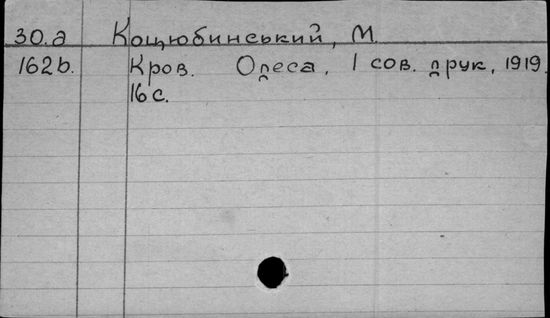 30.а Коцюбинський, М.
162b. Кров. Одеса, 1 сов. друк, 1919.
16 с.